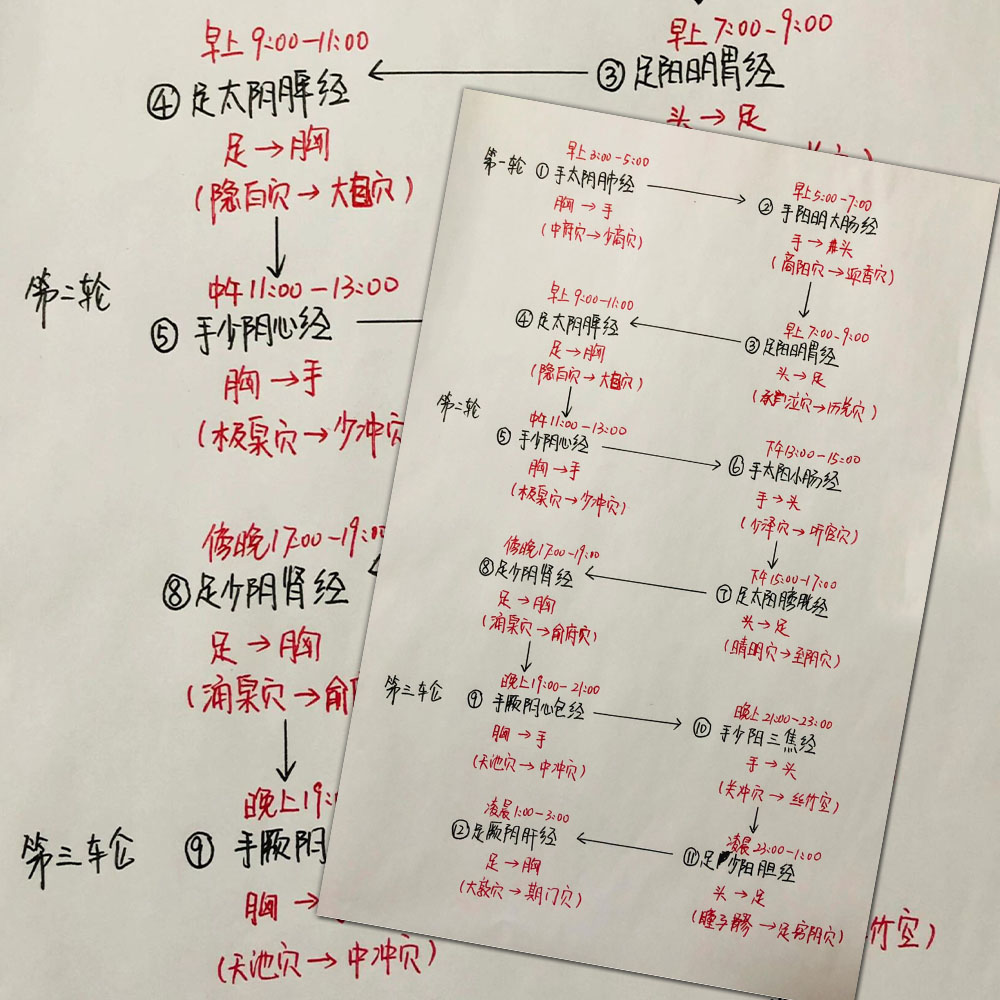 早上 9:00-11:00
④ 足太阴脾经
足→胸
(隐白穴→大包穴)
第二轮
中午 11:00-13:00
⑤ 手少阴心经
胸→手
(极泉穴→少冲穴
傍晚 17:00-19:00
⑧ 足少阴肾经
足→胸
(涌泉穴→俞
晚上 19:
第三轮
⑨ 手厥阴
胸→
(天池穴→中冲穴)
早上 7:00-9:00
③ 足阳明胃经
头→足
竹空)
第一轮
早上 3:00-5:00
① 手太阴肺经
胸→手
(中府穴→少商穴)
早上 5:00-7:00
② 手阳明大肠经
手→头
(商阳穴→迎香穴)
早上 9:00-11:00
④ 足太阴脾经
足→胸
(隐白穴→大包穴)
早上 7:00-9:00
③ 足阳明胃经
头→足
(承泣穴→厉兑穴)
第二轮
中午 11:00-13:00
⑤ 手少阴心经
胸→手
(极泉穴→少冲穴)
下午 13:00-15:00
⑥ 手太阳小肠经
手→头
(少泽穴→听宫穴)
傍晚 17:00-19:00
⑧ 足少阴肾经
足→胸
(涌泉穴→俞府穴)
下午 15:00-17:00
⑦ 足太阳膀胱经
头→足
(睛明穴→至阴穴)
第三轮
晚上 19:00-21:00
⑨ 手厥阴心包经
胸→手
(天池穴→中冲穴)
晚上 21:00-23:00
⑩ 手少阳三焦经
手→头
(关冲穴→丝竹空)
凌晨 1:00-3:00
⑫ 足厥阴肝经
足→胸
(大敦穴→期门穴)
凌晨 23:00-1:00
⑪ 足少阳胆经
头→足
(瞳子髎→足窍阴穴)